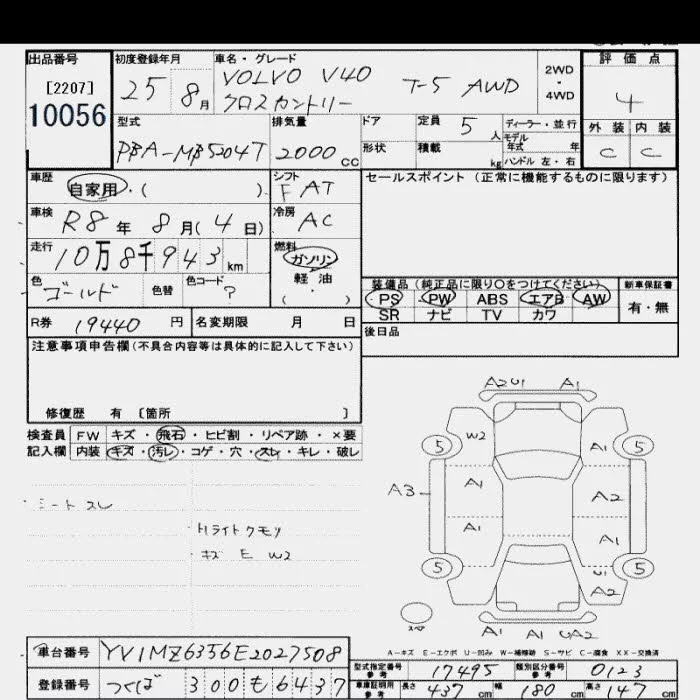 出品番号 初度登録年月 車名・グレード 評価点
[2207] 25 8月 VOLVO V40 T-5 AWD 2WD・4WD 4
10056 クロスカントリー
外装 内装
C C
型式 排気量 ドア 定員 5人 ディーラー・並行
PBA-MB5204T 2000cc 形状 積載 kg モデル年式 年
ハンドル 左・右
車歴 自家用・( ) シフト F AT セールスポイント(正常に機能するものに限ります)
車検 R8年 8月(4日) 冷房 AC
走行 10万8千943km 燃料 ガソリン
軽油
( ・ )
色 ゴールド 色替 色コード ?
装備品(純正品に限り○をつけてください) 新車保証書
PS PW ABS エアB AW 有・無
SR ナビ TV カワ
R券 19440円 名変期限 月 日 後日品
注意事項申告欄(不具合内容等は具体的に記入して下さい)
修復歴 有〔箇所 〕
検査員 FW キズ・飛石・ヒビ割・リペア跡・×要
記入欄 内装 キズ・汚レ・コゲ・穴・スレ・キレ・破レ
シートスレ
Hライトクモリ
キズ E W2
A2U1 A1
W2
5 5
A1
A1
A3 A2
A1 A1
5 5
U1
A2
スペア
A1 A1 UA2
A-キズ E-エクボ U-凹み W-補修跡 S-サビ C-腐食 XX-交換済
車台番号 YV1MZ6356E2027508
登録番号 つくば 300 も 6437
型式指定番号 参考 17495 類別区分番号 参考 0123
車庫証明用 参考 長さ 437cm 幅 180cm 高さ 147cm